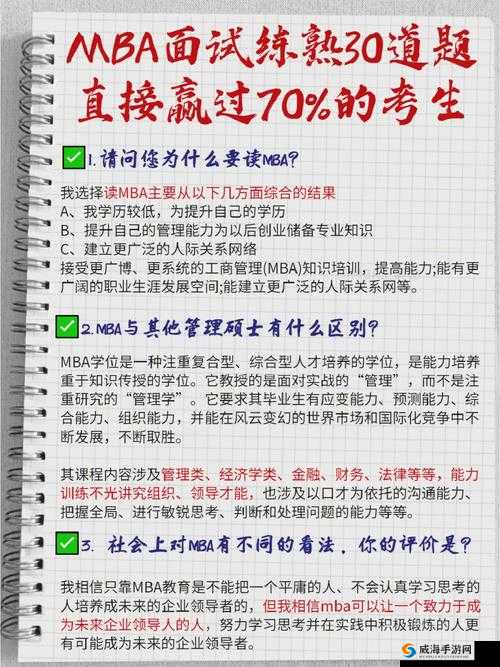 MBA面试练熟30道题
直接赢过70%的考生
1.请问您为什么要读MBA?
我选择读MBA主要从以下几方面综合的结果
A、我学历较低，为提升自己的学历
B、提升自己的管理能力为以后创业储备专业知识
C、建立更广泛的人际关系网络
接受更广博、更系统的工商管理(MBA)知识培训，提高能力;能有更
广阔的职业生涯发展空间;能建立更广泛的人际关系网等。
2.MBA与其他管理硕士有什么区别?
MBA学位是一种注重复合型、综合型人才培养的学位，是能力培养
重于知识传授的学位。它教授的是面对实战的“管理”，而不是注
重研究的“管理学”。它要求其毕业生有应变能力、预测能力、综
合能力、组织能力，并能在风云变幻的世界市场和国际化竞争中不
断发展，不断取胜。
其课程内容涉及管理类、经济学类、金融、财务、法律等等，能力
训练不光讲究组织、领导才能，也涉及以口才为依托的沟通能力、
把握全局、进行敏锐思考、判断和处理问题的能力等等。
3. 社会上对MBA有不同的看法，你的评价是?
我相信只靠MBA教育是不能把一个平庸的人、不会认真学习思考的
人培养成未来的企业领导者的，但我相信mba可以让一个致力于成
为未来企业领导人的人，努力学习思考并在实践中积极锻炼的人更
有可能成为未来的企业领导者。
威海手游网